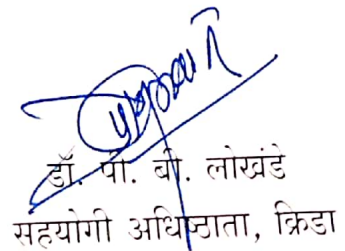 डॉ. पी. बी. लोखंडे
सहयोगी अधिष्ठाता, क्रिडा